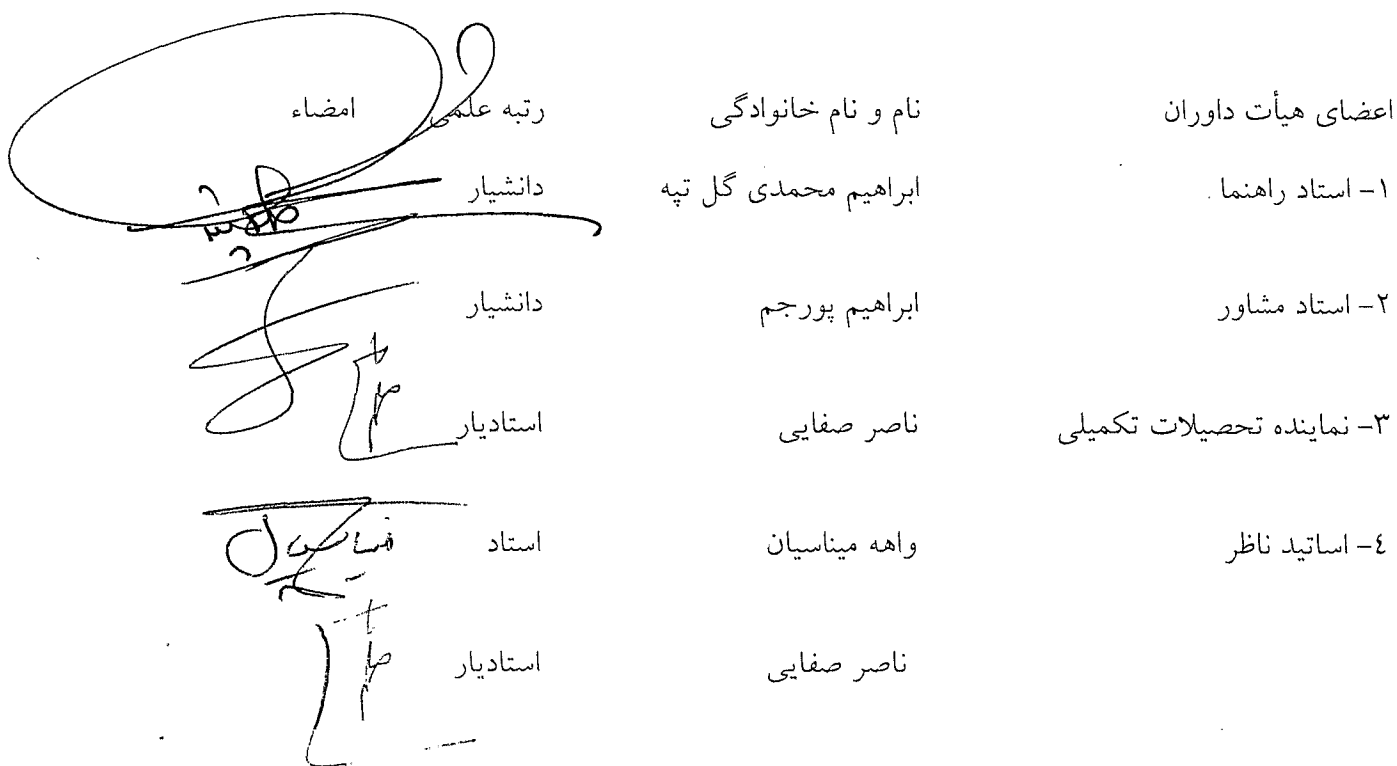 اعضای هیأت داوران نام و نام خانوادگی رتبه علمی امضاء
۱- استاد راهنما ابراهیم محمدی گل تپه دانشیار
۲- استاد مشاور ابراهیم پورجم دانشیار
۳- نماینده تحصیلات تکمیلی ناصر صفایی استادیار
٤- اساتید ناظر واهه میناسیان استاد
ناصر صفایی استادیار